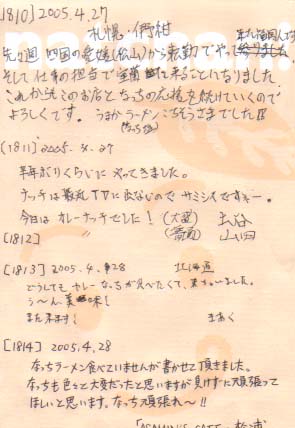 1810] 2005.4.27
札幌・伊紺
先々週 四国の愛媛(松山)から転勤でやって
そして仕事の担当で 来ることになりました
これからもこのお店となっちの応援を続けていくので
よろしくです。うまかラーメンごちそうさまでした!!
[1811] 2005.4.27
半年ぶりくらいに やってきました。
ナッチは最近TVに出ないので サミシイですネー。
今日は カレーナッチでした!
[1812]
[1813] 2005.4.28 北海道
どうしても カレーなっちが食べたくて、来ちゃいました。
う〜ん美味!
また来ます! まあく
[1814] 2005.4.28
なっちラーメン食べていませんが書かせて頂きました。
なっちも色々と大変だったと思いますが負けずに頑張って
ほしいと思います。なっち頑張れ〜!!